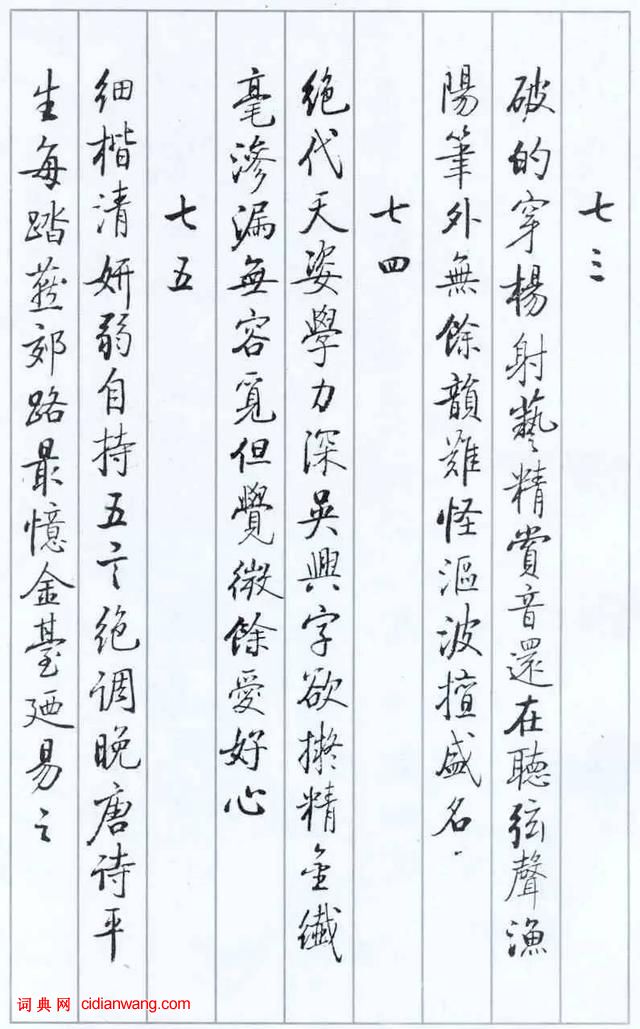 七三
破的穿楊射藝精賞音還在聽弦聲漁
陽筆外無餘韻難怪漚波擅盛名
七四
絕代天姿學力深吳興字欲擬精金纖
毫滲漏無容覓但覺微餘愛好心
七五
细楷清妍弱自持五言绝调晚唐诗平
生每踏燕郊路最憶金臺廼易之
词典网 cidianwang.com